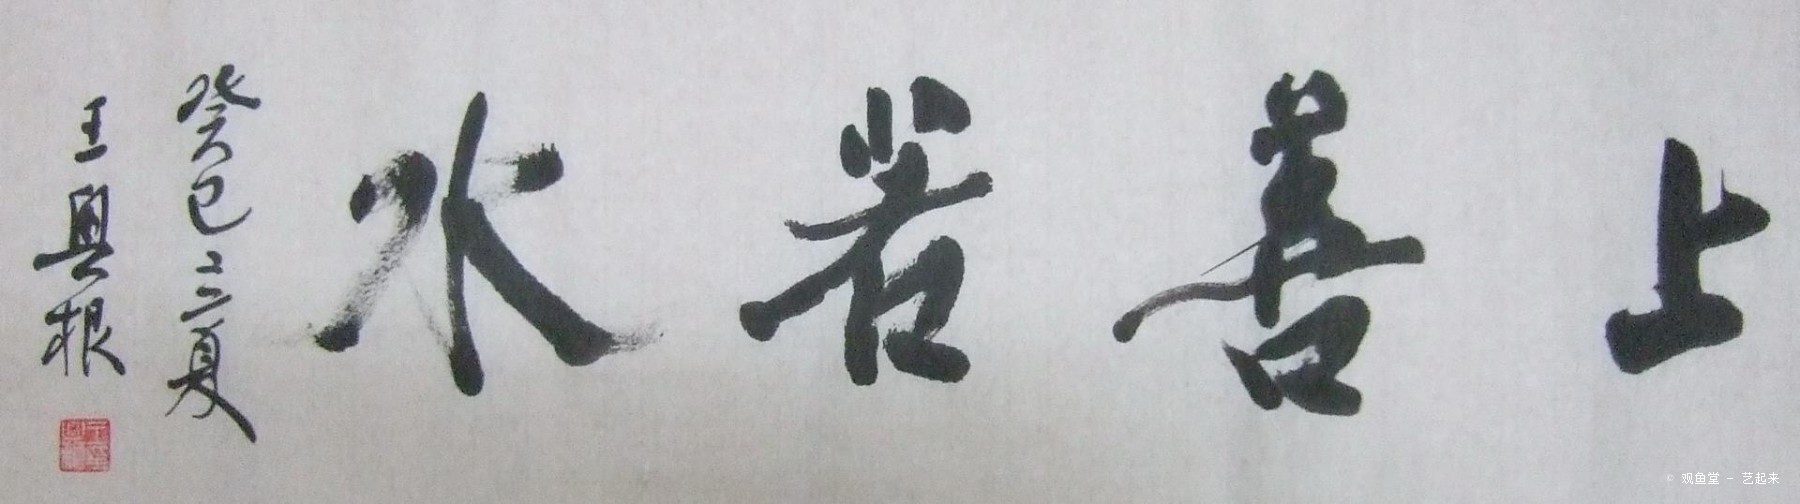 上善若水
癸巳立夏
王兴根
© 观鱼堂 - 艺起来